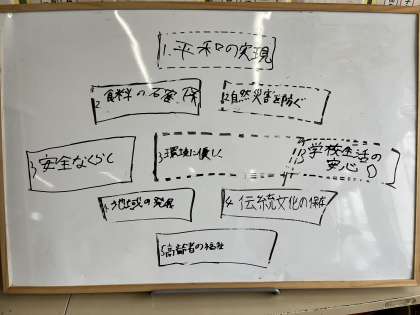 1.平和の実現
2食料の確保
2自然災害を防ぐ
3安全なくらし
3環境に優しく
学校生活の
安心
4地域の発展
4.伝統文化の保存
5高齢者の福祉